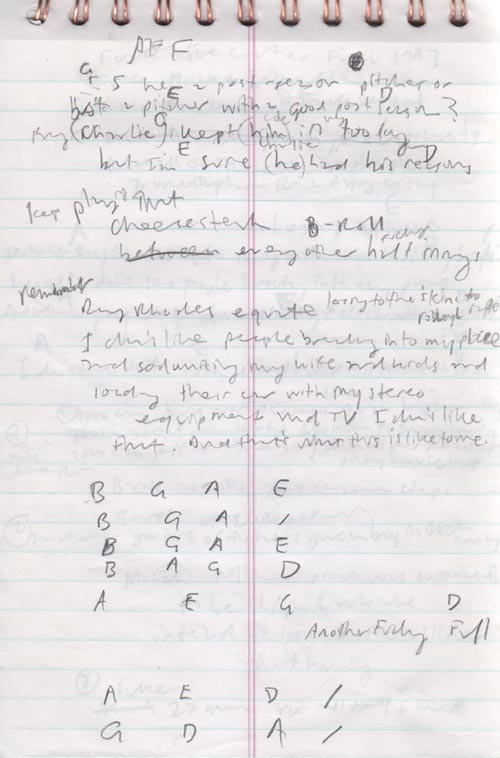 AFF E
G
Is he a post season pitcher or
E D
a pitcher with a good post season?
(Charlie) G kept (him) in too long
Charlie
but I'm E sure (he) had his reasons D
keep playing that
cheesesteak B-Roll
every other half innings
remember
Ray Rhodes equate losing to the
I don't like people breaking into my place
and sodomizing my wife and kids and
loading their car with my stereo
equipment and TV I don't like
that. And that's what this is like to me.
B G A E
B G A /
B G A E
B A G D
A E G D
Another Fucking Full
A E D /
G D A /